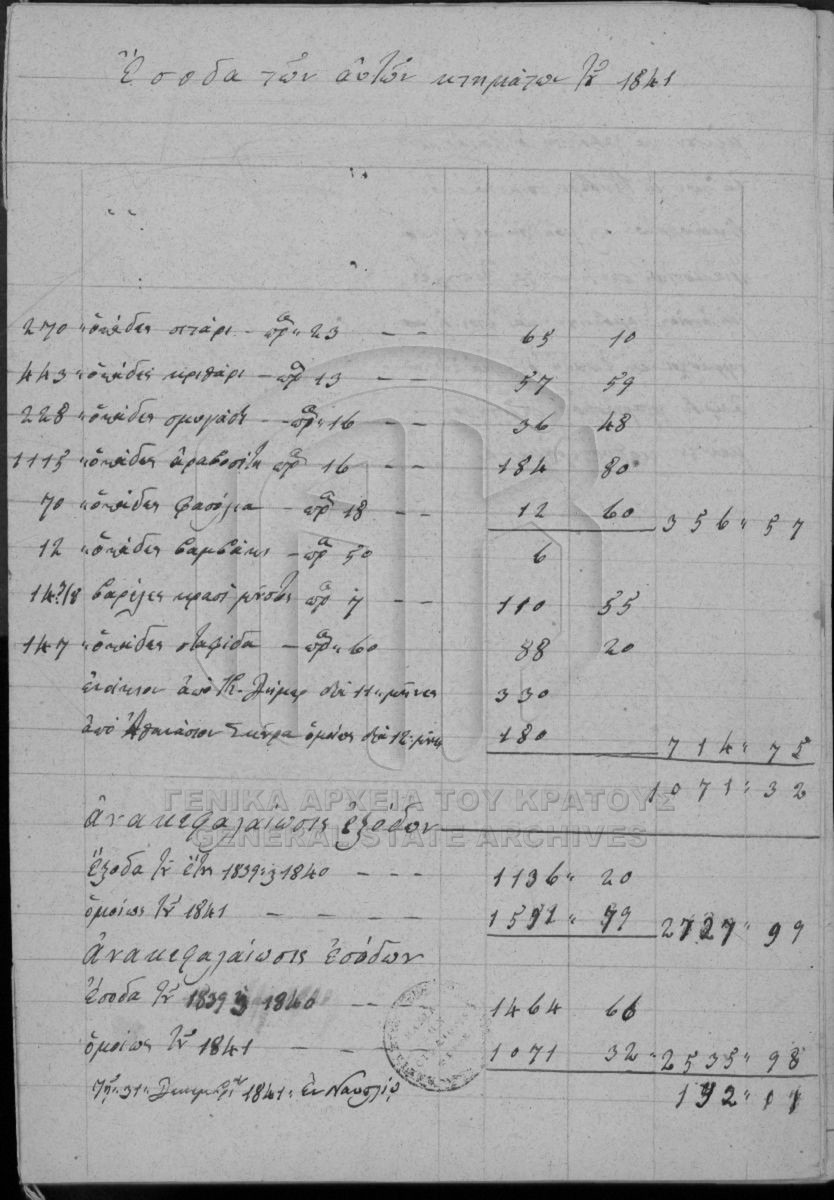 Ἔσοδα τῶν αὐτῶν κτημάτων τοῦ 1841
270 " ὀκάδες σιτάρι – πρ " 23 – – 65 10
443 " ὀκάδες κριθάρι – πρ 13 – – 57 59
228 " ὀκάδες σμιγάδι – πρ " 16 – – 36 48
1115 " ὀκάδες ἀραβοσίτι πρ 16 – – 184 80
70 " ὀκάδες φασόλια – πρ 18 – – 12 60 356 " 57
12 " ὀκάδες βαμβάκι – πρ 50 6
βαρέλες κρασί μοῦστος πρ 7 – – 110 55
147 " ὀκάδες σταφίδα – πρ " 60 88 20
ἐνοίκιον ἀπό διά 11 " μῆνες 330
ἀπό Ἀθανάσιον ὁμοίως διά 12 " μῆνες 180 714 " 75
1071 " 32
ἀνακεφαλαίωσις ἐξόδων
Ἔξοδα τοῦ ἔτους 1839 " ϗ 1840 – – – 1136 " 20
ὁμοίως τοῦ 1841 – – – – 1591 " 79 2727 " 99
ἀνακεφαλαίωσις ἐσόδων
Ἔσοδα τοῦ 1839 ϗ 1840 – – 1464 66
ὁμοίως τοῦ 1841 – – – – 1071 32 " 2535 " 98
τῇ " 31 " Δεκεμβρίου 1841 " Ἐν Ναυπλίῳ 192 " 01
ΓΕΝΙΚΑ ΑΡΧΕΙΑ ΤΟΥ ΚΡΑΤΟΥΣ
GENERAL STATE ARCHIVES